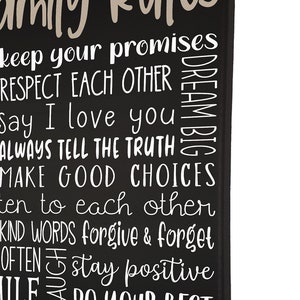 family Rules
keep your promises
RESPECT EACH OTHER
DREAM BIG
say I love you
ALWAYS TELL THE TRUTH
MAKE GOOD CHOICES
ten to each other
KIND WORDS forgive & forget
OFTEN
AUGH
stay positive
ILE
DO YOUR BEST